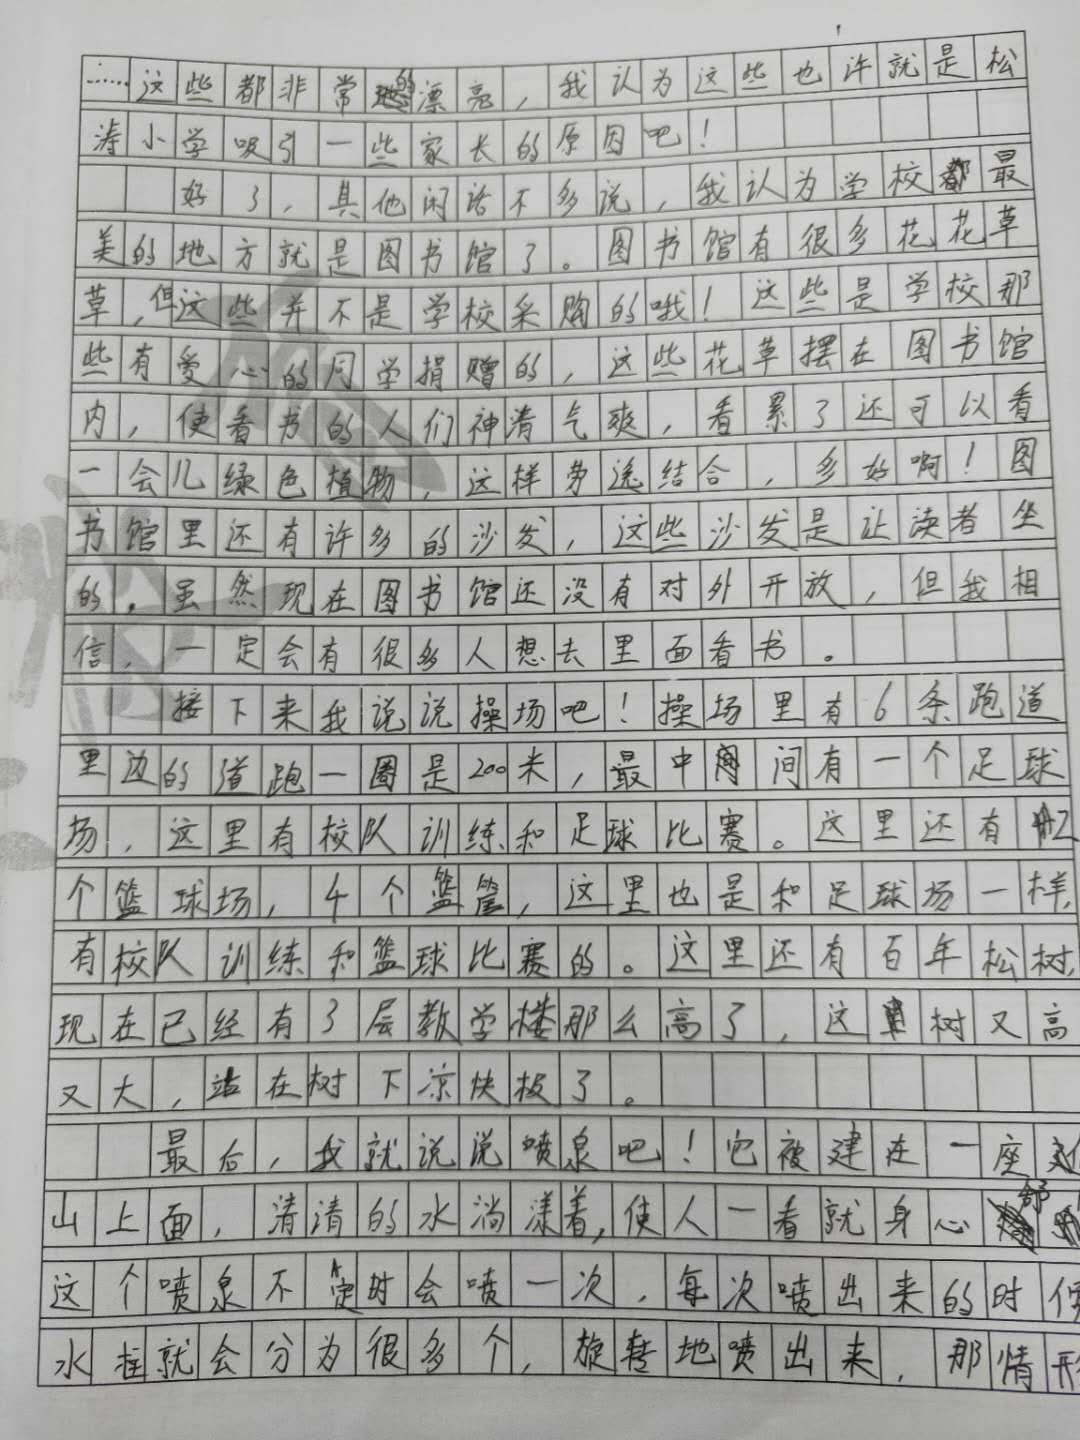 ……这些都非常的漂亮，我认为这些也许就是松
涛小学吸引一些家长的原因吧！
好了，其他闲话不多说，我认为学校最
美的地方就是图书馆了。图书馆有很多花花草
草，但这些并不是学校采购的哦！这些是学校那
些有爱心的同学捐赠的，这些花草摆在图书馆
内，使看书的人们神清气爽，看累了还可以看
一会儿绿色植物，这样劳逸结合，多好啊！图
书馆里还有许多的沙发，这些沙发是让读者坐
的。虽然现在图书馆还没有对外开放，但我相
信，一定会有很多人想去里面看书。
接下来我说说操场吧！操场里有6条跑道
里边的道跑一圈是200米，最中间有一个足球
场，这里有校队训练和足球比赛。这里还有2
个篮球场，4个篮筐，这里也是和足球场一样，
有校队训练和篮球比赛的。这里还有百年松树，
现在已经有了3层教学楼那么高了，这树又高
又大，站在树下凉快极了。
最后，我就说说喷泉吧！它被建在一座
山上面，清清的水淌漾着，使人一看就身心舒
这个喷泉不定时会喷一次，每次喷出来的时
水柱就会分为很多个，旋转地喷出来，那情形